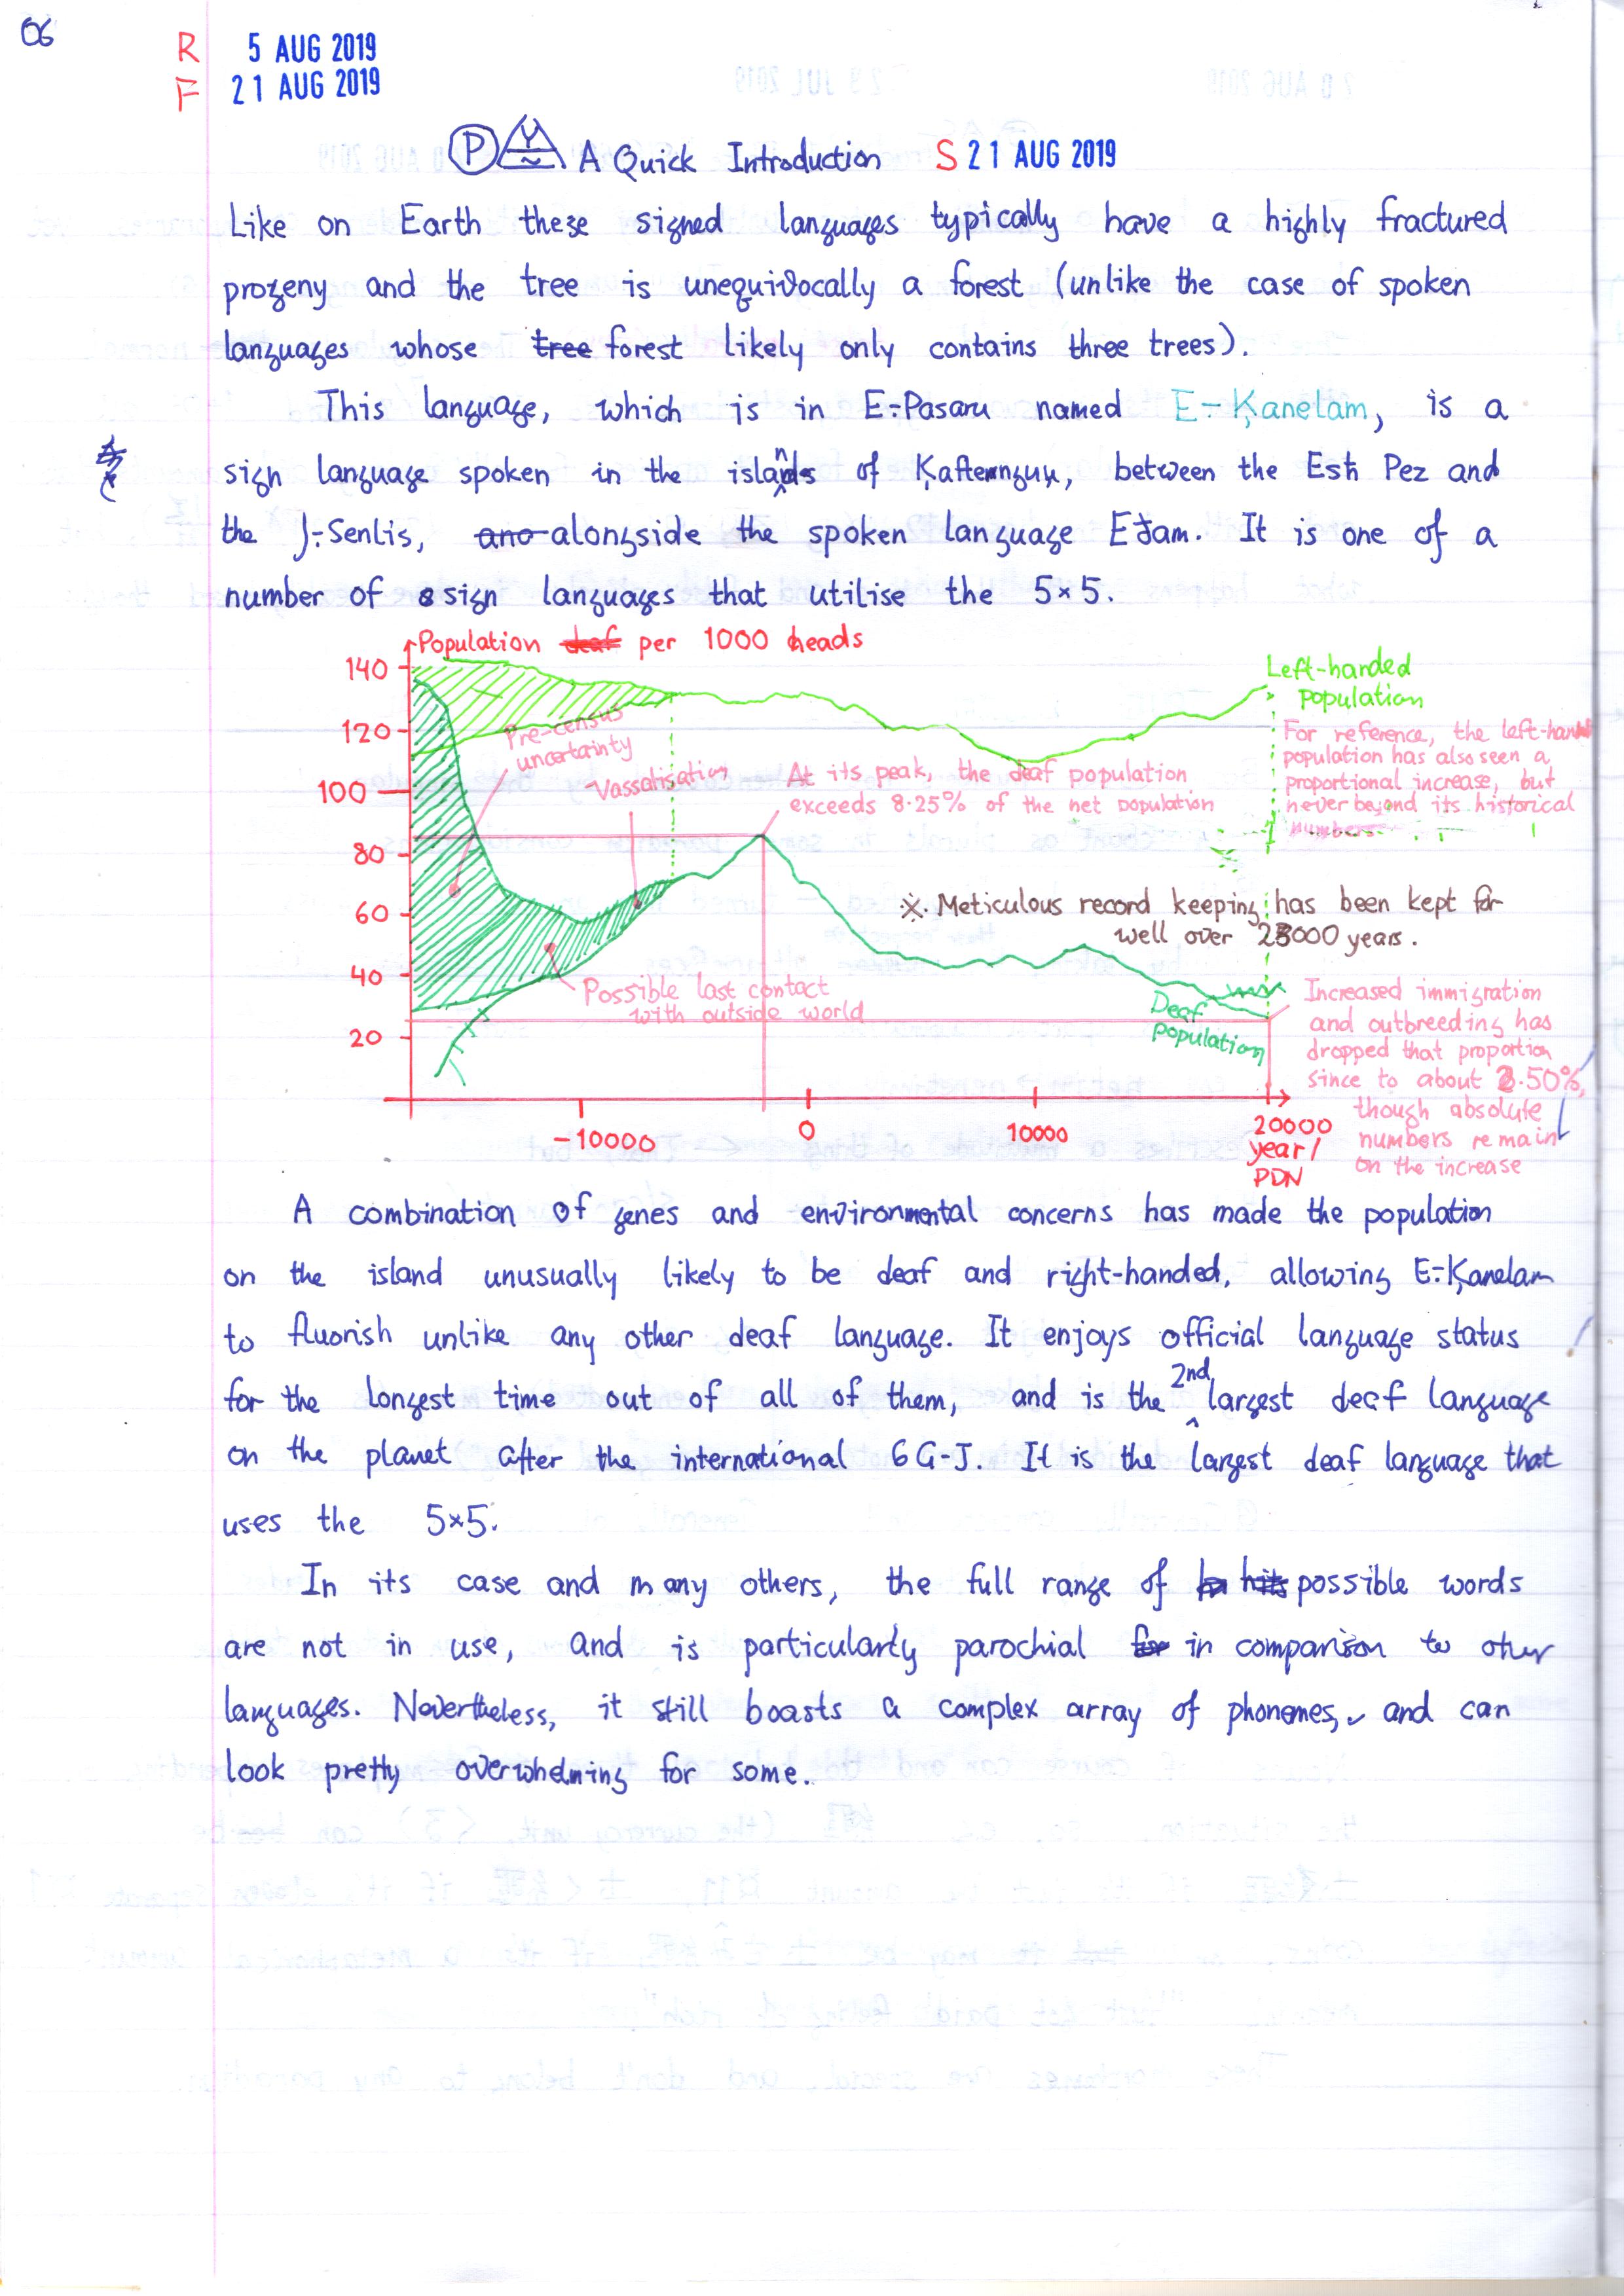 06
R 5 AUG 2019
F 21 AUG 2019
P Y ~ A Quick Introduction S 21 AUG 2019
Like on Earth these signed languages typically have a highly fractured
progeny and the tree is unequivocally a forest (unlike the case of spoken
languages whose tree forest likely only contains three trees).
This language, which is in E-Pasaru named E-Ķanelam, is a
sign language spoken in the islands of between the Esħ Pez and
the J-Senlis, and alongside the spoken language It is one of a
number of sign languages that utilise the 5×5.
Population deaf per 1000 heads
140
120
100
80
60
40
20
-10000
0
10000
20000
year/
PDN
Left-handed
population
For reference, the left-hand
population has also seen a
proportional increase, but
never beyond its historical
numbers
Pre-census
uncertainty
Vassalisation
At its peak, the deaf population
exceeds 8.25% of the net population
※. Meticulous record keeping has been kept for
well over 23000 years.
Possible last contact
with outside world
Deaf
population
Increased immigration
and outbreeding has
dropped that proportion
since to about 2.50%,
though absolute
numbers remain
on the increase
A combination of genes and environmental concerns has made the population
on the island unusually likely to be deaf and right-handed, allowing E-Ķanelam
to fluorish unlike any other deaf language. It enjoys official language status
for the longest time out of all of them, and is the 2nd largest deaf language
on the planet after the international 6G-J. It is the largest deaf language that
uses the 5×5.
In its case and many others, the full range of possible words
are not in use, and is particularly parochial for in comparison to other
languages. Nevertheless, it still boasts a complex array of phonemes, and can
look pretty overwhelming for some.